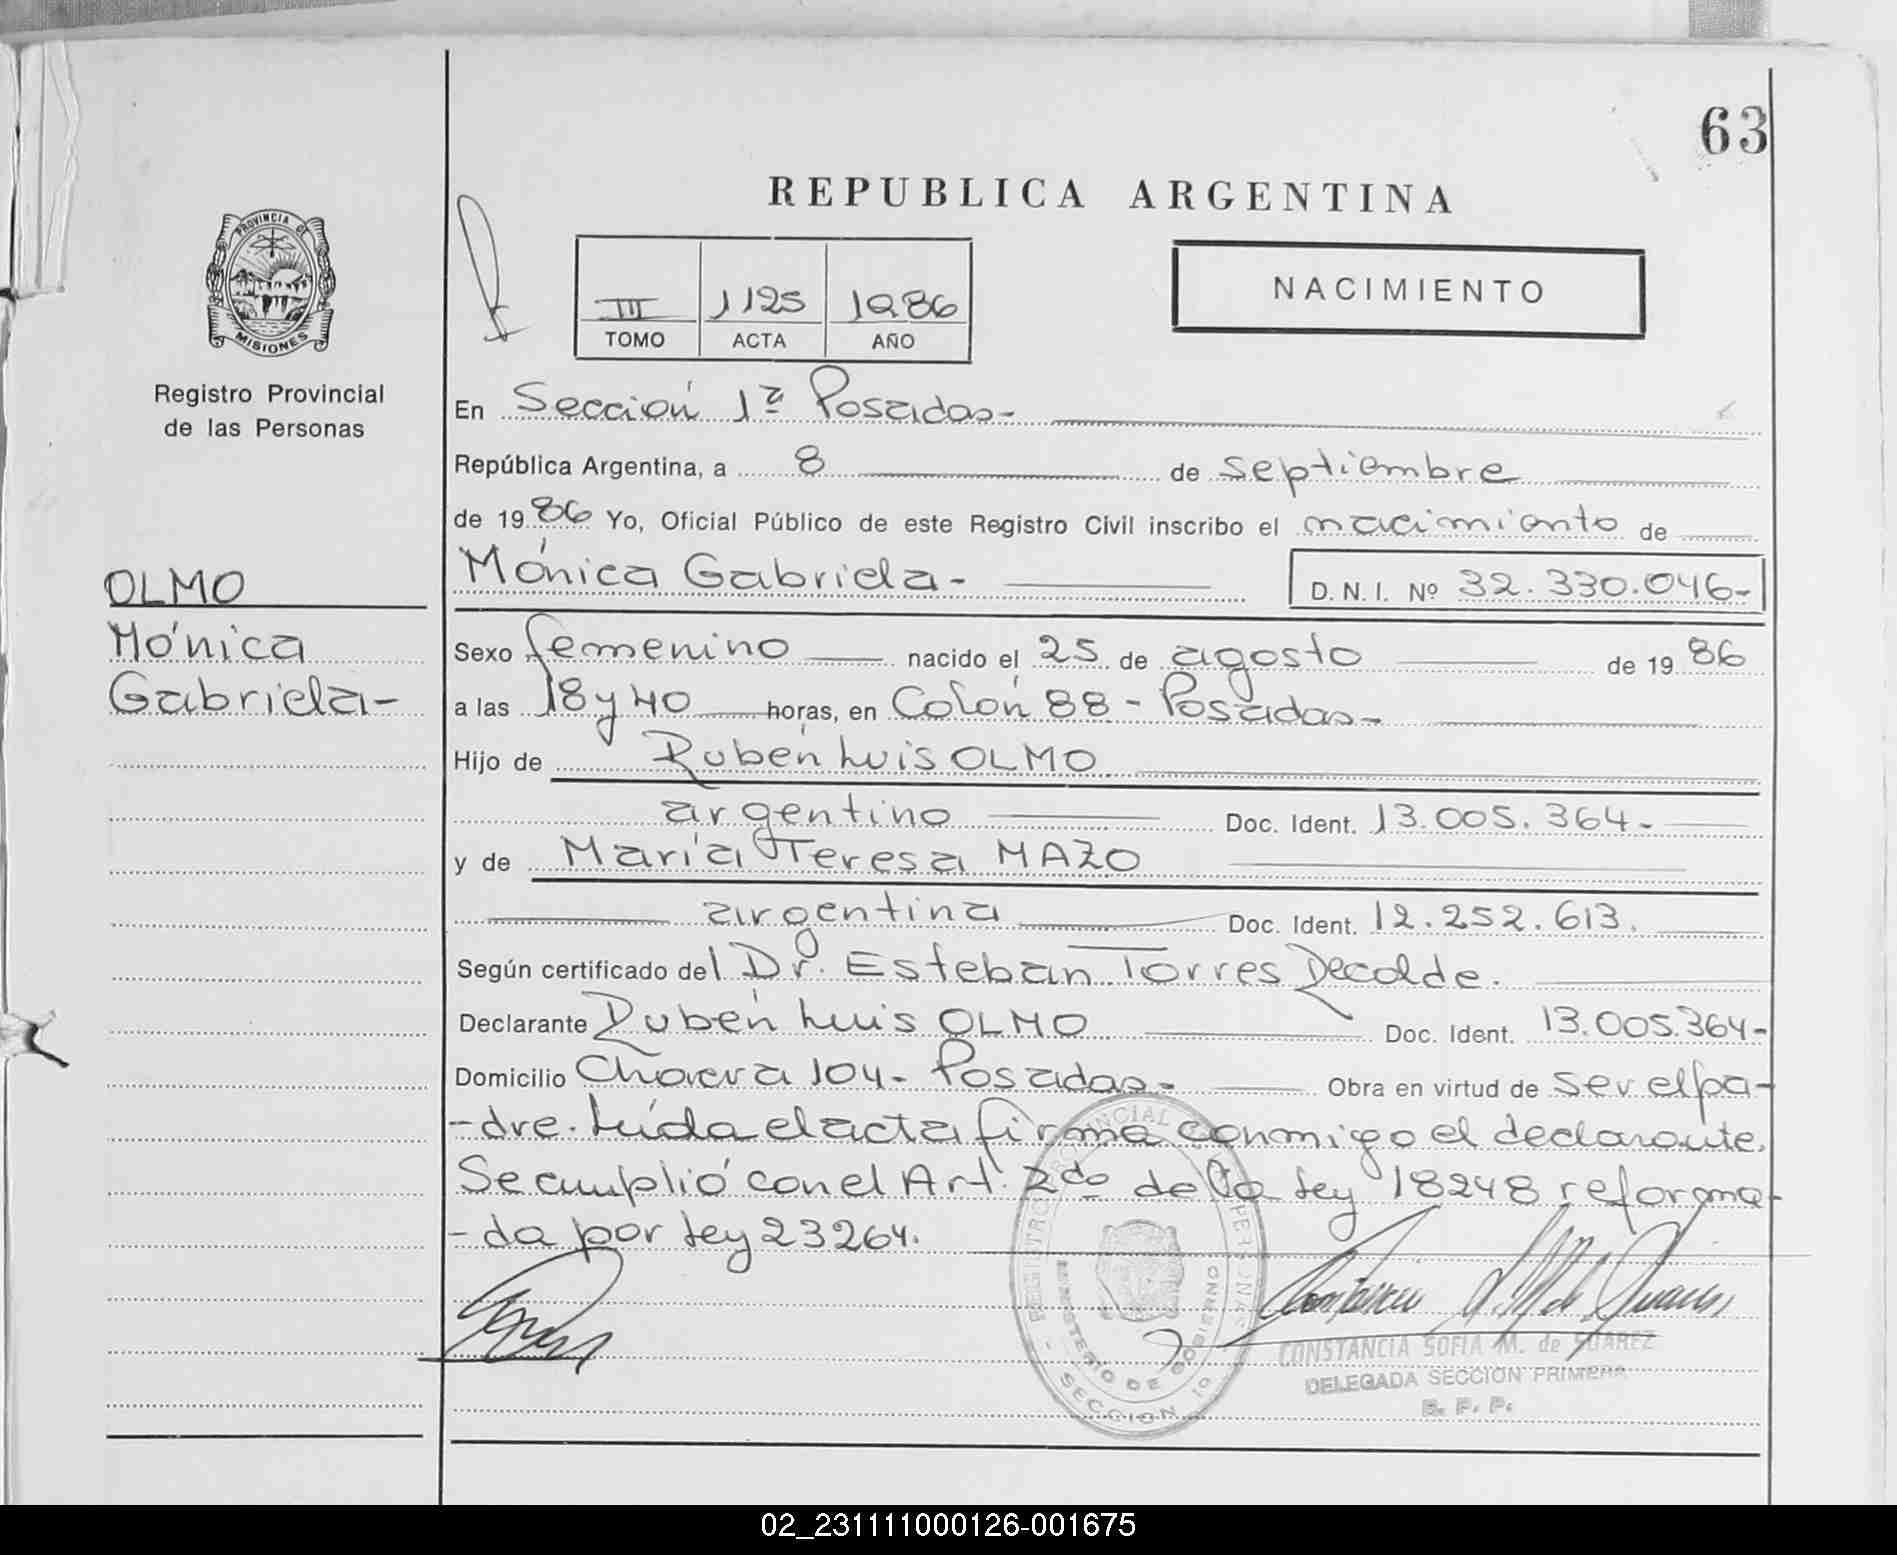 63
REPUBLICA ARGENTINA
PROVINCIA DE
MISIONES
Registro Provincial
de las Personas
III 1125 1986
TOMO ACTA AÑO
NACIMIENTO
En Sección 1ª Posadas-
República Argentina, a 8 de septiembre
de 1986 Yo, Oficial Público de este Registro Civil inscribo el nacimiento de
Mónica Gabriela- D. N. I. Nº 32.330.046-
OLMO
Mónica
Gabriela-
Sexo femenino nacido el 25 de agosto de 1986
a las 18 y 40 horas, en Colón 88 - Posadas-
Hijo de Rubén Luis OLMO
argentino Doc. Ident. 13.005.364-
y de María Teresa MAZO
argentina Doc. Ident. 12.252.613.
Según certificado del Dr. Esteban Torres Recalde.
Declarante Rubén Luis OLMO Doc. Ident. 13.005.364-
Domicilio 104- Posadas- Obra en virtud de ser el pa-
-dre. Leída el acta firma conmigo el declarante.
Se cumplió con el Art. 2do de la Ley 18248 reforma-
-da por Ley 23264.
REGISTRO PROVINCIAL DE LAS PERSONAS
MINISTERIO DE GOBIERNO
- SECCION 1º
CONSTANCIA SOFIA M. de SUAREZ
DELEGADA SECCION PRIMERA
R. P. P.
02_231111000126-001675